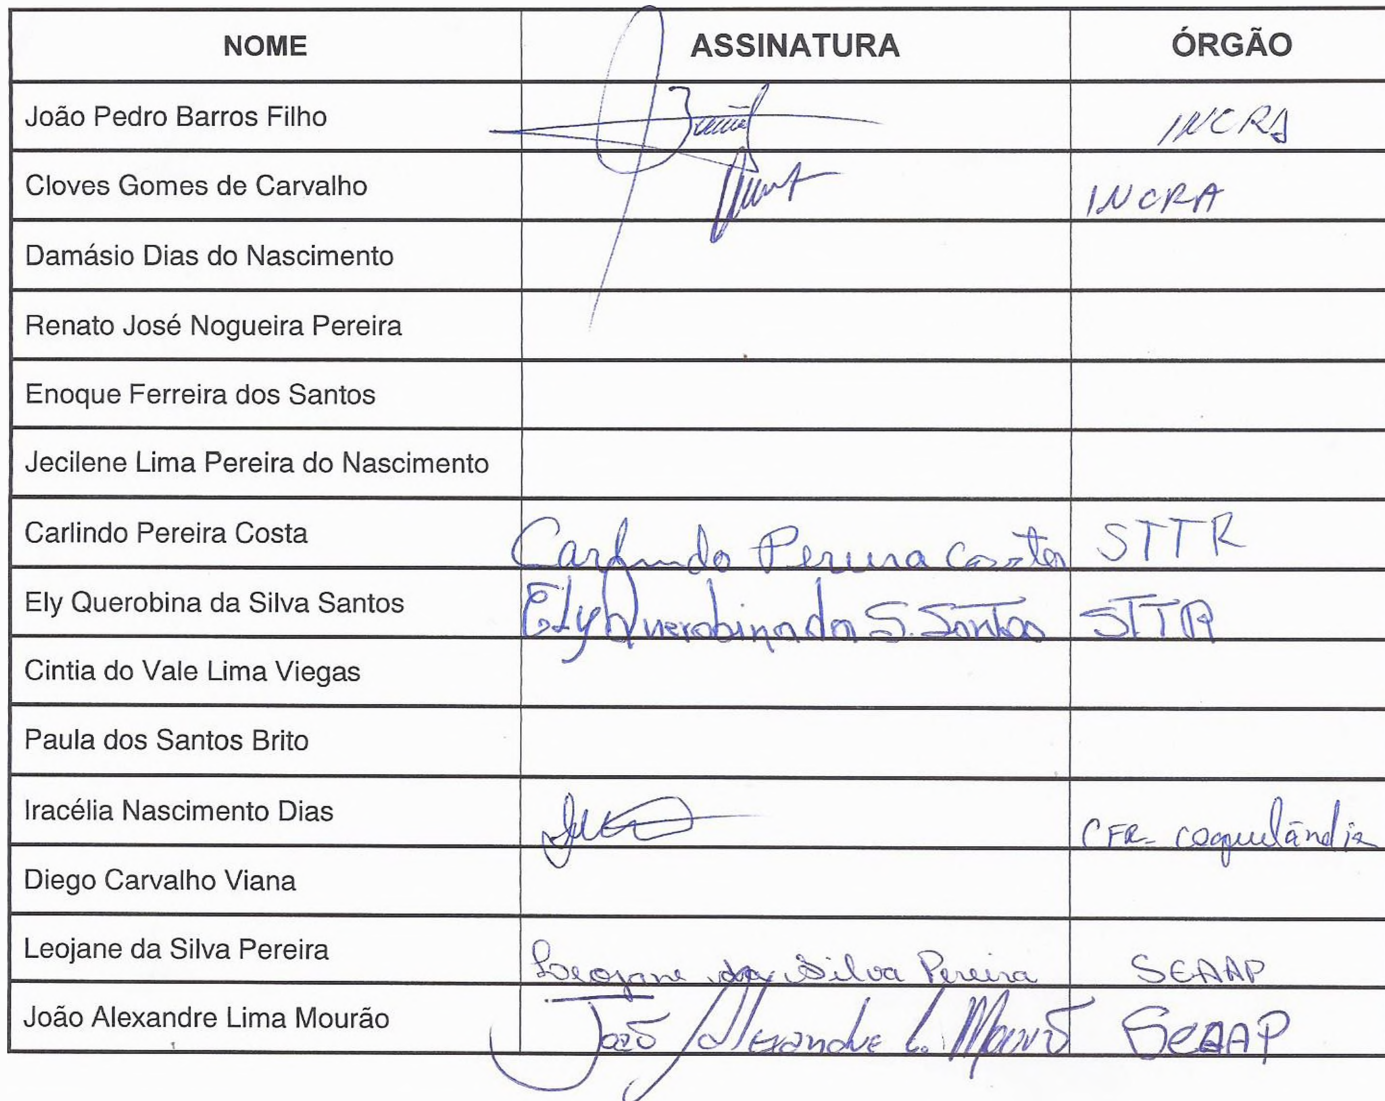 NOME ASSINATURA ÓRGÃO
João Pedro Barros Filho INCRA
Cloves Gomes de Carvalho INCRA
Damásio Dias do Nascimento
Renato José Nogueira Pereira
Enoque Ferreira dos Santos
Jecilene Lima Pereira do Nascimento
Carlindo Pereira Costa Carlindo Pereira Costa STTR
Ely Querobina da Silva Santos Ely Querobina da S. Santos STTR
Cintia do Vale Lima Viegas
Paula dos Santos Brito
Iracélia Nascimento Dias CFR- coquelândia
Diego Carvalho Viana
Leojane da Silva Pereira Leojane da Silva Pereira SEAAP
João Alexandre Lima Mourão João Alexandre L. Mourão SEAAP